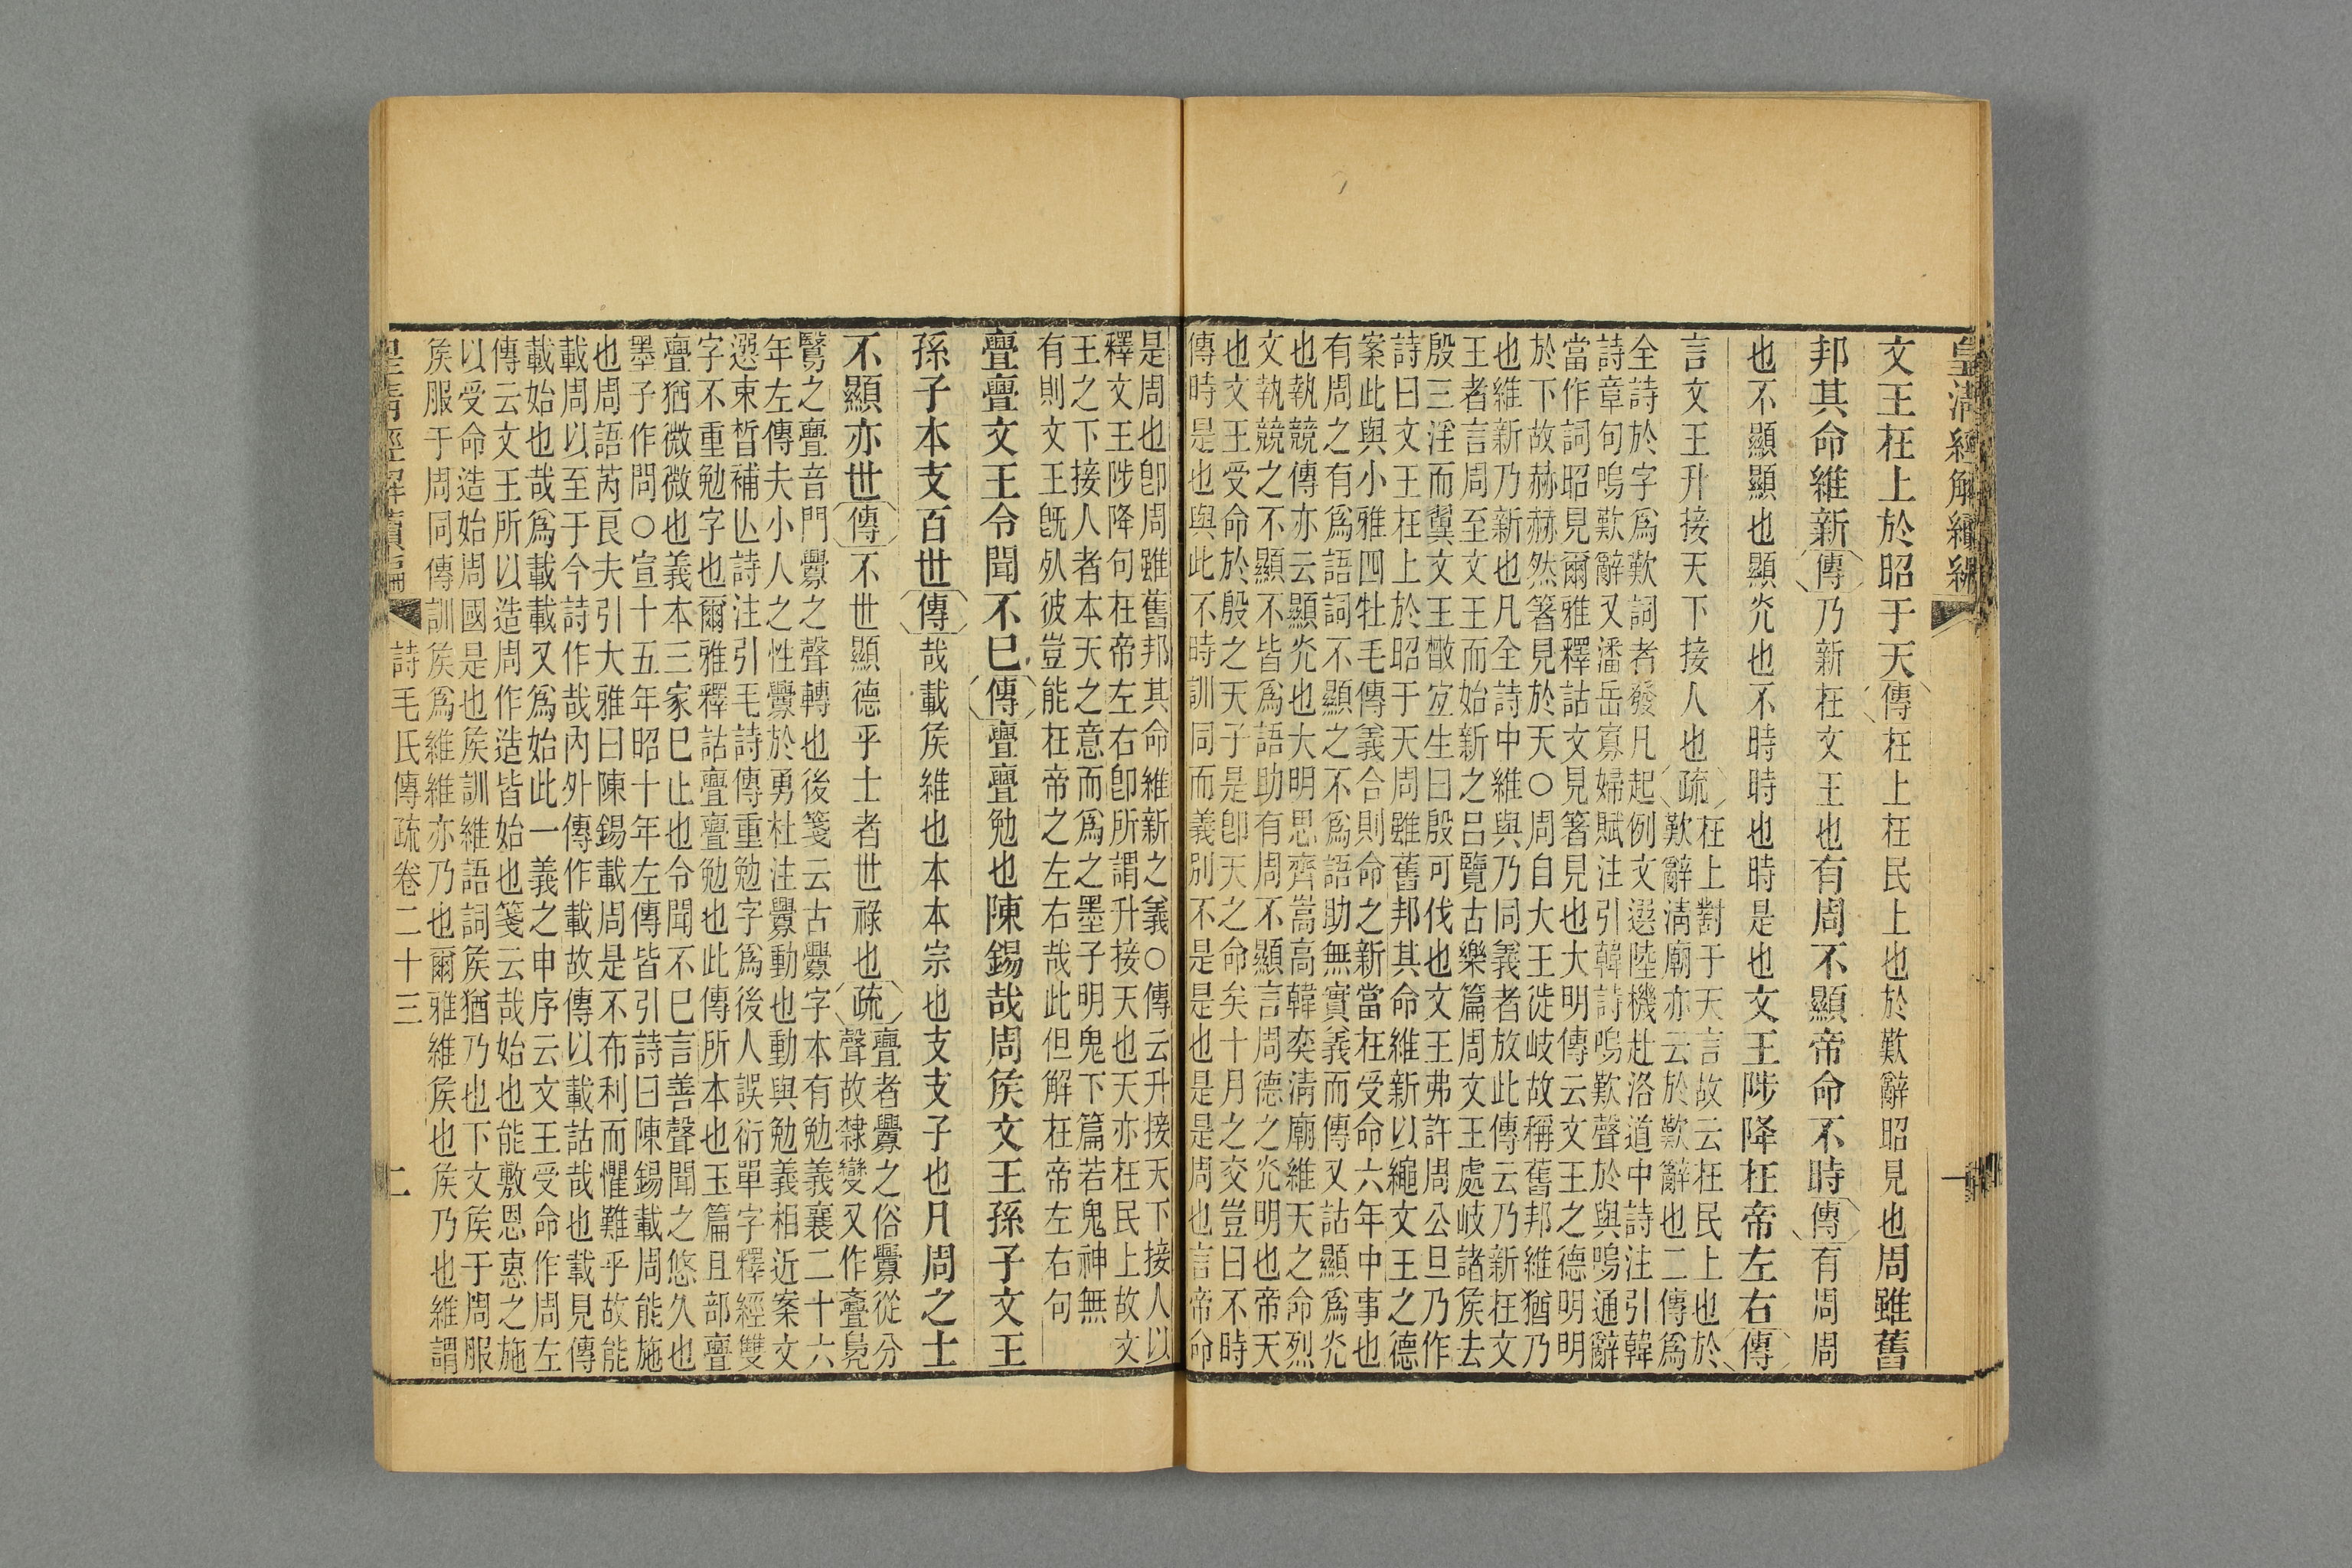 皇清經解續編
一
文王在上於昭于天傳在上在民上也於歎辭昭見也周雖舊
邦其命維新傳乃新在文王也有周不顯帝命不時傳有周周
也不顯顯也顯光也不時時也時是也文王陟降在帝左右傳
言文王升接天下接人也疏
在上對于天言故云在民上也於
歎辭淸廟亦云於歎辭也二傳爲
全詩於字爲歎詞者發凡起例文選陸機赴洛道中詩注引韓
詩章句嗚歎辭又潘岳寡婦賦注引韓詩嗚歎聲於與嗚通辭
當作詞昭見爾雅釋詁文見箸見也大明傳云文王之德明明
於下故赫赫然箸見於天○周自大王徙岐故稱舊邦維猶乃
也維新乃新也凡全詩中維與乃同義者放此傳云乃新在文
王者言周至文王而始新之呂覽古樂篇周文王處岐諸矦去
殷三淫而翼文王散宜生曰殷可伐也文王弗許周公旦乃作
詩曰文王在上於昭于天周雖舊邦其命維新以繩文王之德
案此與小雅四牡毛傳義合則命之新當在受命六年中事也
有周之有爲語詞不顯之不爲語助無實義而傳又詁顯爲光
也執競傳亦云顯光也大明思齊嵩高韓奕淸廟維天之命烈
文執競之不顯不皆爲語助有周不顯言周德之光明也帝天
也文王受命於殷之天子是卽天之命矣十月之交豈曰不時
傳時是也與此不時訓同而義別不是是也是是周也言帝命
是周也卽周雖舊邦其命維新之義○傳云升接天下接人以
釋文王陟降句在帝左右卽所謂升接天也天亦在民上故文
王之下接人者本天之意而爲之墨子明鬼下篇若鬼神無
有則文王旣死彼豈能在帝之左右哉此但解在帝左右句
亹亹文王令聞不已傳亹亹勉也陳錫哉周矦文王孫子文王
孫子本支百世傳哉載矦維也本本宗也支支子也凡周之士
不顯亦世傳不世顯德乎士者世祿也疏
亹者釁之俗釁從分
聲故隸變又作亹鳧
鷖之亹音門釁之聲轉也後箋云古釁字本有勉義襄二十六
年左傳夫小人之性釁於勇杜注釁動也動與勉義相近案文
選束晳補亾詩注引毛詩傳重勉字爲後人誤衍單字釋經雙
字不重勉字也爾雅釋詁亹亹勉也此傳所本也玉篇且部亹
亹猶微微也義本三家已止也令聞不已言善聲聞之悠久也
墨子作問○宣十五年昭十年左傳皆引詩曰陳錫載周能施
也周語芮良夫引大雅曰陳錫載周是不布利而懼難乎故能
載周以至于今詩作哉內外傳作載故傳以載詁哉也載見傳
載始也哉爲載載又爲始此一義之申序云文王受命作周左
傳云文王所以造周作造皆始也箋云哉始也能敷恩惠之施
以受命造始周國是也矦訓維語詞矦猶乃也下文矦于周服
矦服于周同傳訓矦爲維維亦乃也爾雅維矦也矦乃也維謂
皇淸經解續編
詩毛氏傳疏卷二十三
二